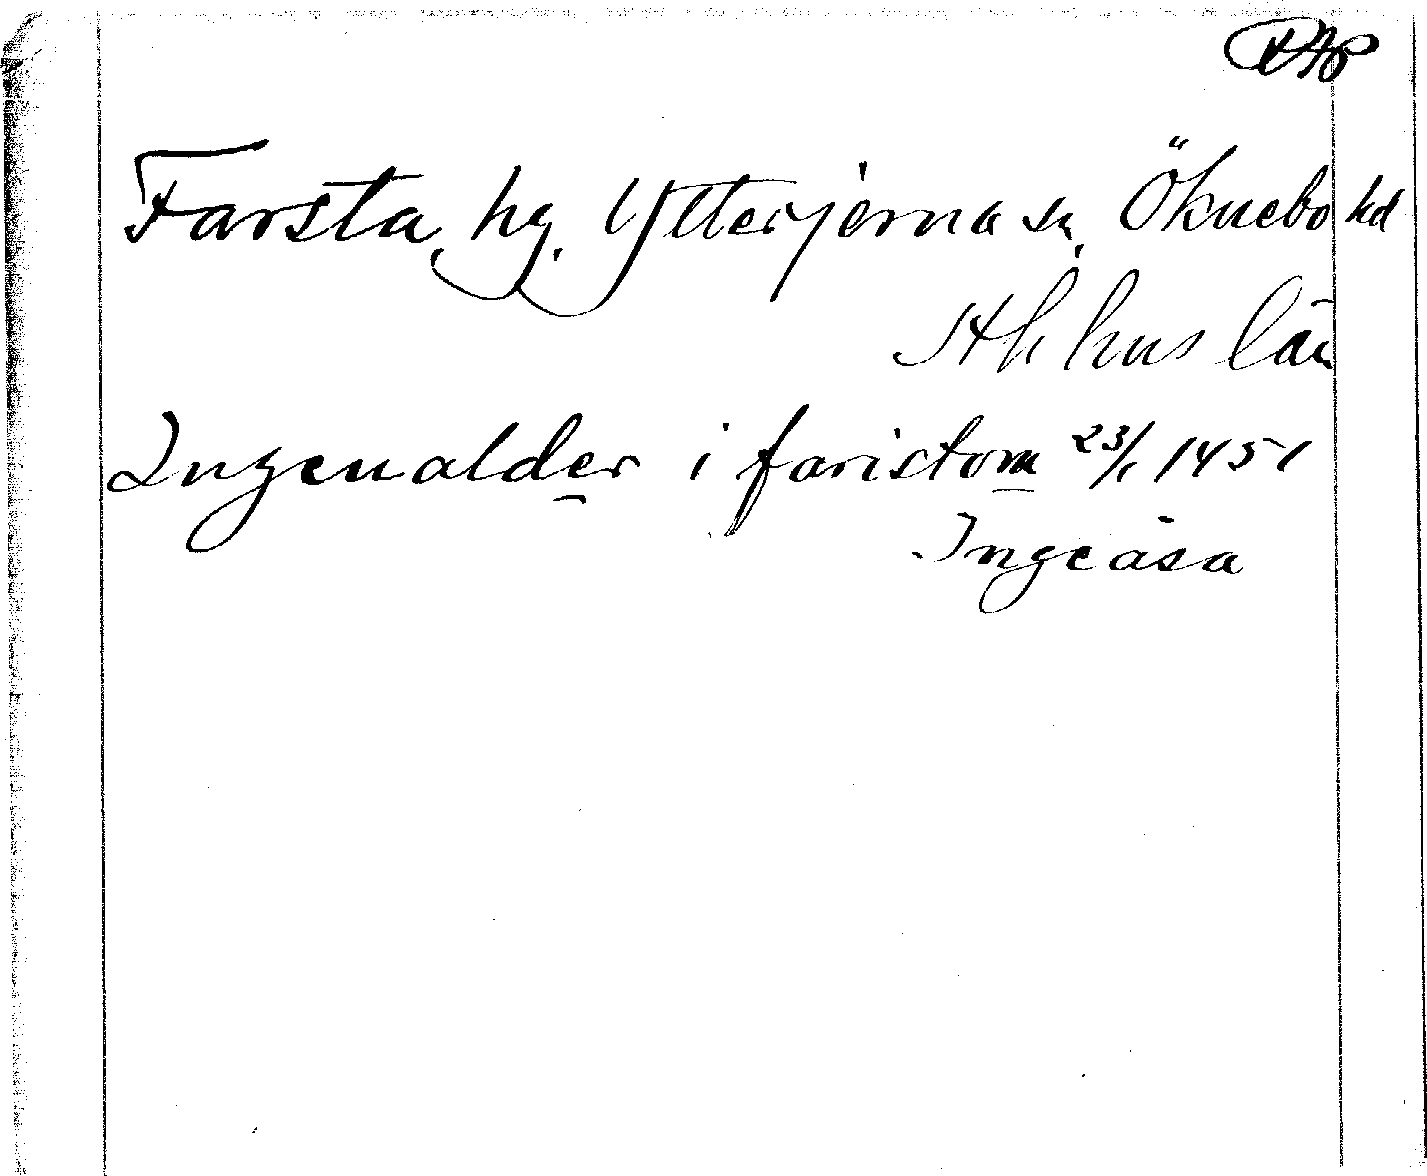 RAP
Farsta, hg, Ytterjerna sn, Öknebo hd
Sthhus län
Ingeualder i faristom 23/1 1451
Ingeåsa